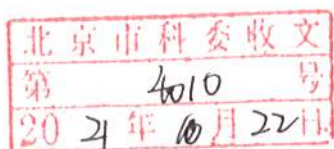 北京市科委收文
第 4010 号
20 21 年 10 月 22 日